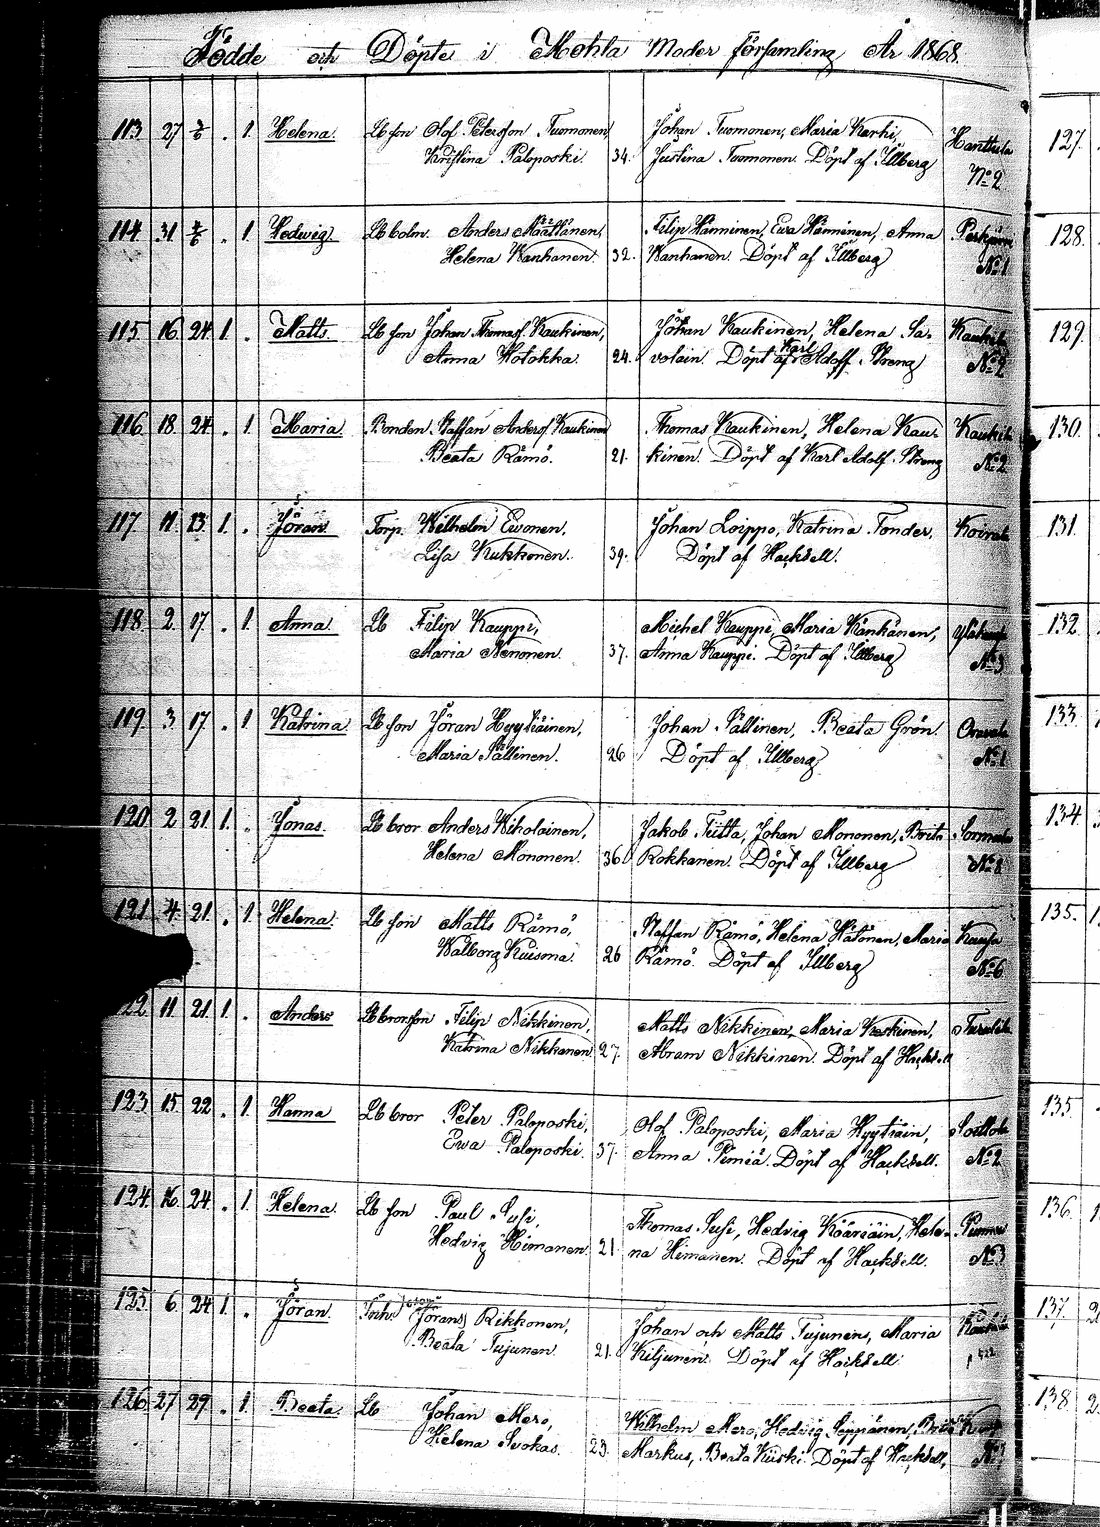 Födde och Döpte i Mohla Moder församling År 1868.
113 27 2/6 . 1. Helena. Lb son Olof Petersson Tuomonen, Johan Tuomonen, Maria Karhi,
Kristina Paloposki. 34. Justina Tuomonen. Döpt af Illberg Hanttula
No 2
114 31 2/6 . 1. Hedwig. Lb Anders Määttänen, Filip Hänninen, Ewa Hänninen, Anna
Helena Wanhanen. 32. Wanhanen. Döpt af Illberg No 1
115 16 24 1. . Matts. Lb son Johan Thomasf Kaukinen, Johan Kaukinen, Helena Sa-
Anna Hotokka. 24. volain. Döpt af Karl Adolf Streng No 2
116 18 24 . 1. Maria. Bonden Staffan Andersf Kaukinen Thomas Kaukinen, Helena Kau-
Beata Rämö. 21. kinen. Döpt af Karl Adolf Streng No 2
117 11 13 1. . Jöran Torp. Wilhelm Ewonen, Johan Loippo, Katrina Tonder,
Lisa Kukkonen. 39. Döpt af Hackzell.
118 2 17 . 1. Anna Lb Filip Kauppi, Michel Kauppi, Maria Känkänen,
Maria Nenonen. 37. Anna Kauppi. Döpt af Illberg No 3
119 3 17 . 1 Katrina. Lb son Jöran Hyytiäinen, Johan Pällinen, Beata Grön. Oravala
Maria Pällinen. 26 Döpt af Illberg No 1
120 2 21 1. . Jonas. Lb bror Anders Wiholainen, Jakob Tiitta, Johan Mononen, Brita
Helena Mononen. 36 Rokkanen. Döpt af Illberg No 8
121 4 21 . 1. Helena. Lb son Matts Rämö, Staffan Rämö, Helena Hätönen, Maria
Walborg Kuisma. 26 Rämö. Döpt af Illberg No 6
22 11 21 1. . Anders Lb bronson Filip Nikkinen, Matts Nikkinen, Maria Koskinen,
Katrina Nikkanen 27. Abram Nikkinen. Döpt af Hackzell
123 15 22 . 1. Hanna Lb bror Peter Paloposki, Olof Paloposki, Maria Hyytiäin,
Ewa Paloposki. 37. Anna Pimiä. Döpt af Hackzell. No 2
124. 16 24 . 1. Helena. Lb son Paul Susi, Thomas Susi, Hedvig Kääriäin, Hele-
Hedvig Himanen. 21. na Himanen. Döpt af Hackzell. No 3
125. 6. 24 1. . Jöran. Inh. Jörans Rikkonen, Johan och Matts Tujunen, Maria
Beata Tujunen. 21. Kiljunen. Döpt af Hackzell.
126 27 29 . 1. Beata. Lb Johan Mero, Wilhelm Mero, Hedvig Seppänen,
Helena Svokas. 23. Markus, Beata Kiiski. Döpt af Hackzell.
127.
128.
129.
130.
131.
132.
133.
134.
135.
135.
136.
137.
138.